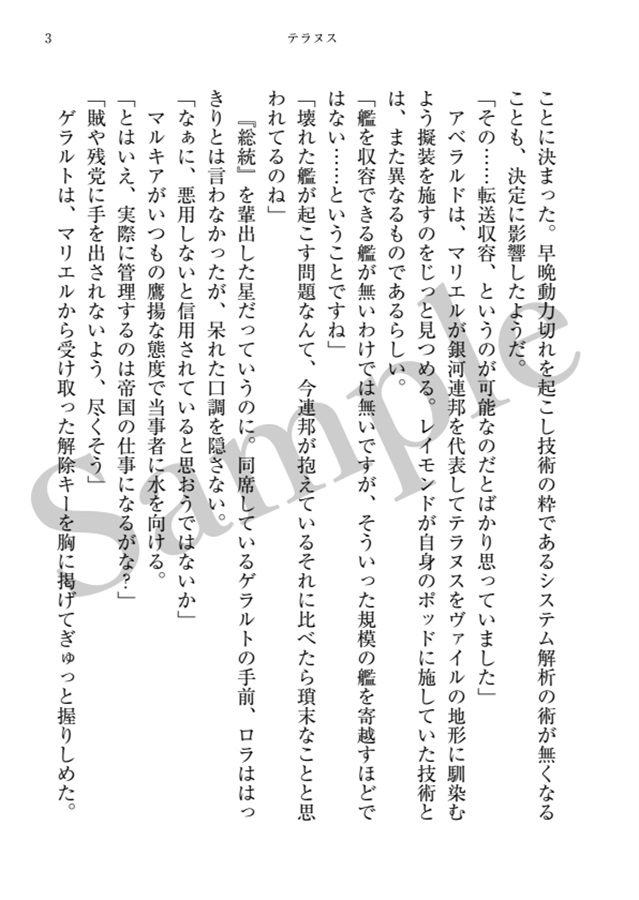 3
テラヌス
ことに決まった。早晩動力切れを起こし技術の粋であるシステム解析の術が無くなる
ことも、決定に影響したようだ。
「その……転送収容、というのが可能なのだとばかり思っていました」
アベラルドは、マリエルが銀河連邦を代表してテラヌスをヴァイルの地形に馴染む
よう擬装を施すのをじっと見つめる。レイモンドが自身のポッドに施していた技術と
は、また異なるものであるらしい。
「艦を収容できる艦が無いわけでは無いですが、そういった規模の艦を寄越すほどで
はない……ということですね」
「壊れた艦が起こす問題なんて、今連邦が抱えているそれに比べたら瑣末なことと思
われてるのね」
『総統』を輩出した星だっていうのに。同席しているゲラルトの手前、ロラははっ
きりとは言わなかったが、呆れた口調を隠さない。
「なぁに、悪用しないと信用されていると思おうではないか」
マルキアがいつもの鷹揚な態度で当事者に水を向ける。
「とはいえ、実際に管理するのは帝国の仕事になるがな？」
「賊や残党に手を出されないよう、尽くそう」
ゲラルトは、マリエルから受け取った解除キーを胸に掲げてぎゅっと握りしめた。
Sample